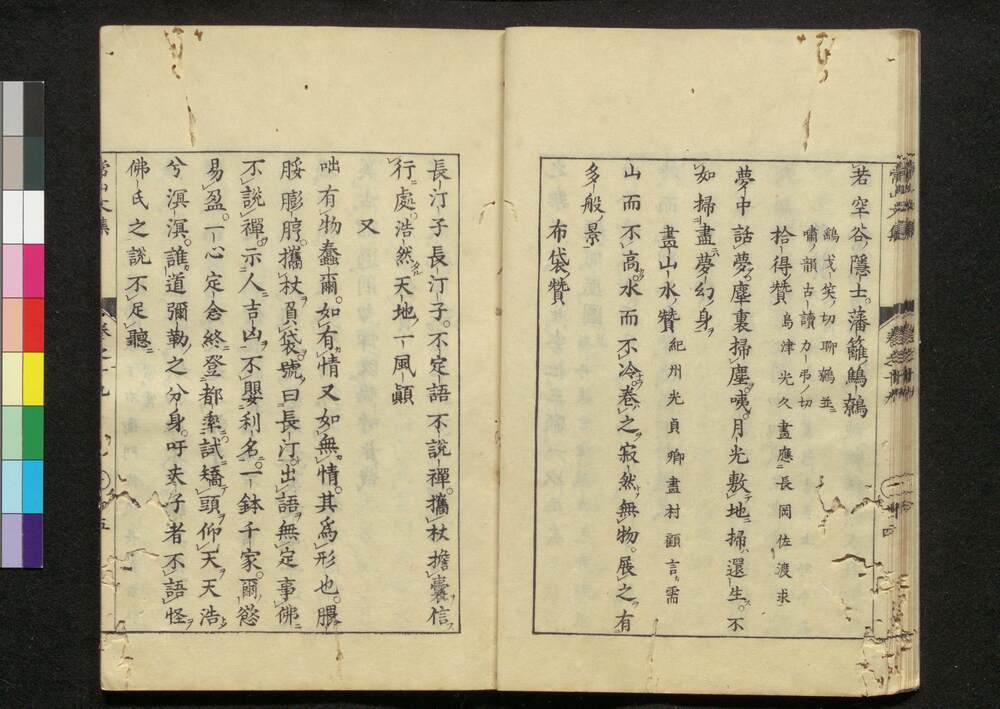 若空谷隱士。藩籬鷦鷯
鷦弋笑ノ切聊鷯並ニ
嘯ノ韻古讀力弔ノ切
拾得ノ贊 島津光久畫應長岡佐渡求
夢中話夢塵裏掃塵。咦。月光敷地掃還生。不
如掃盡夢幻ノ身ヲ
畫山水ノ贊 紀州光貞卿畫村顧言需
山而不高。水而不冷。卷之寂然無物。展之有
多般ノ景
布袋贊
長汀子長汀子。不定語不說禪。攜杖擔囊信
行處。浩然天地ノ一風顚
又
咄有物蠢爾。如有情又如無情。其爲形也。腲
脮膨脝。攜杖負袋。號曰長汀。出語無定事佛
不說禪。示人吉凶。不嬰利名。一鉢千家。爾慾
易盈。一心定念終登都率。試矯頭仰天天浩
兮溟溟。誰道彌勒ノ之分身。吁夫子者不語怪
佛氏之說不足聽
常山文集
卷之十九
五